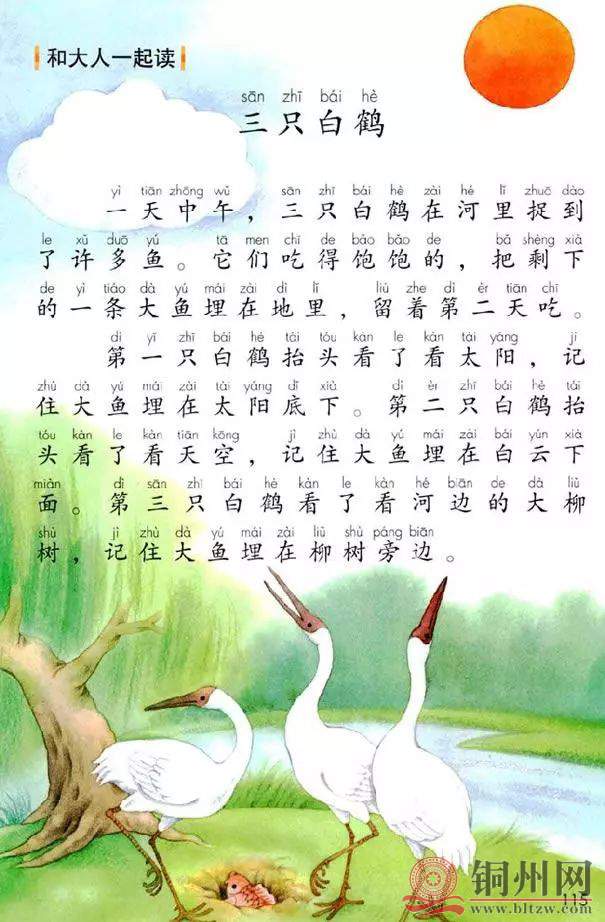 和大人一起读
sān zhī bái hè
三只白鹤
yì tiān zhōng wǔ sān zhī bái hè zài hé lǐ zhuō dào
一天中午，三只白鹤在河里捉到
le xǔ duō yú tā men chī de bǎo bǎo de bǎ shèng xià
了许多鱼。它们吃得饱饱的，把剩下
de yì tiáo dà yú mái zài dì lǐ liú zhe dì èr tiān chī
的一条大鱼埋在地里，留着第二天吃。
dì yī zhī bái hè tái tóu kàn le kàn tài yáng jì
第一只白鹤抬头看了看太阳，记
zhù dà yú mái zài tài yáng dǐ xià dì èr zhī bái hè tái
住大鱼埋在太阳底下。第二只白鹤抬
tóu kàn le kàn tiān kōng jì zhù dà yú mái zài bái yún xià
头看了看天空，记住大鱼埋在白云下
miàn dì sān zhī bái hè kàn le kàn hé biān de dà liǔ
面。第三只白鹤看了看河边的大柳
shù jì zhù dà yú mái zài liǔ shù páng biān
树，记住大鱼埋在柳树旁边。
铜州网
www.bltzw.com
115